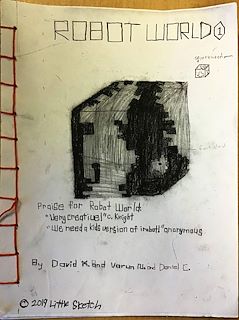 ROBOT WORLD ①
Praise for Robot World:
"Very creative!" C. Knight
"We need a kids version of irobot!" anonymous
By David K. and Varun and Daniel C.
© 2019 Little Sketch